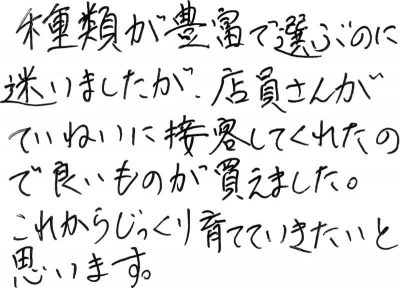 種類が豊富で選ぶのに
迷いましたが、店員さんが
ていねいに接客してくれたの
で良いものが買えました。
これからじっくり育てていきたいと
思います。